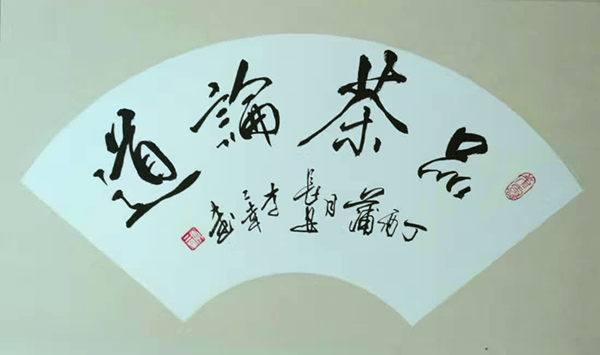 品茶論道
丁酉蒲月長安李書